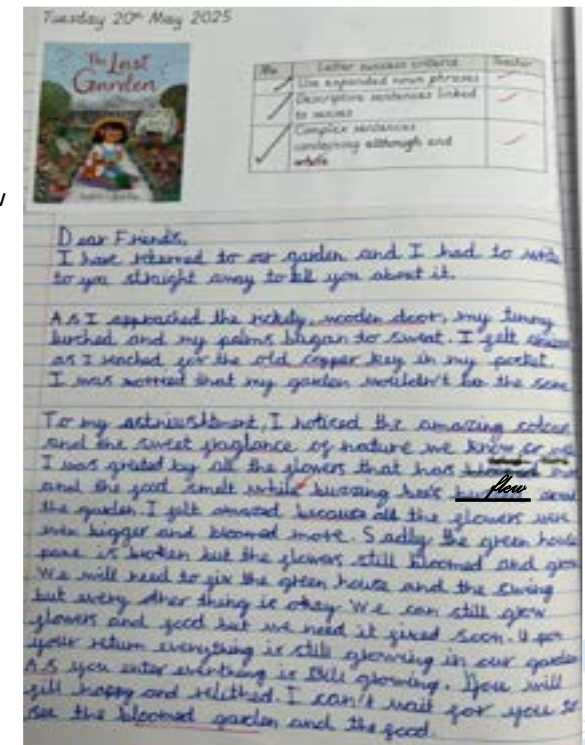 w
Tuesday 20th May 2025
The Last
Garden
Me Letter success criteria Teacher
Use expanded noun phrases
Descriptive sentences linked
to senses
Complex sentences
containing although and
while
Dear Friends,
I have returned to our garden and I had to write
to you straight away to tell you about it.
As I approached the rickety, wooden door, my tummy
lurched and my palms began to sweat. I felt
as I reached for the old copper key in my pocket.
I was worried that my garden wouldn't be the same
To my astrinishtment, I noticed the amazing colour
and the sweet fraglance of nature we know or
I was greted by all the flowers that has
and the food smelt while buzzing bee's flew
the garden. I felt amazed because all the flowers were
even bigger and bloomed more. Sadly the green house
pane is broken but the flowers still bloomed and grow
We will need to fix the green house and the swing
but every other thing is okey. We can still grow
flowers and food but we need it fixed soon. Upon
your return everything is still growing in our garden
As you enter everthing is still growing. You will
fill happy and relithed. I can't wait for you to
see the bloomed garden and the food.